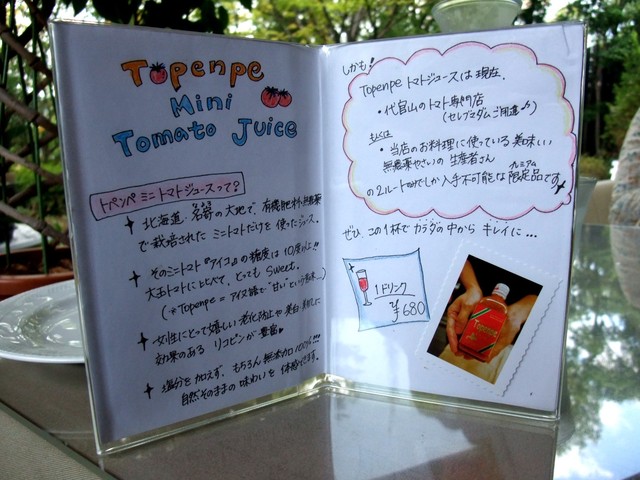 Topenpe
Mini
Tomato Juice
トペンペ ミニトマトジュースって?
北海道、名寄の大地で、有機肥料・無農薬
で栽培されたミニトマトだけを使ったジュース。
そのミニトマト『アイコ』の糖度は10度以上!!
大玉トマトに比べて、とっても Sweet。
(*Topenpe = アイヌ語で"甘い"という意味...)
女性にとって嬉しい老化防止や美白・美肌に
効果のある リコピンが豊富♥
塩分を加えず、もちろん無添加100%!!!
自然そのままの味わいを体感できます。
しかも!
Topenpe トマトジュースは現在、
・代官山のトマト専門店
(セレブマダムご用達♪)
もしくは
・当店のお料理に使っている美味しい
無農薬やさいの生産者さん
の2ルートのみでしか入手不可能な限定品です
プレミアム
ぜひ、この1杯でカラダの中からキレイに...
1ドリンク
¥680
Topenpe